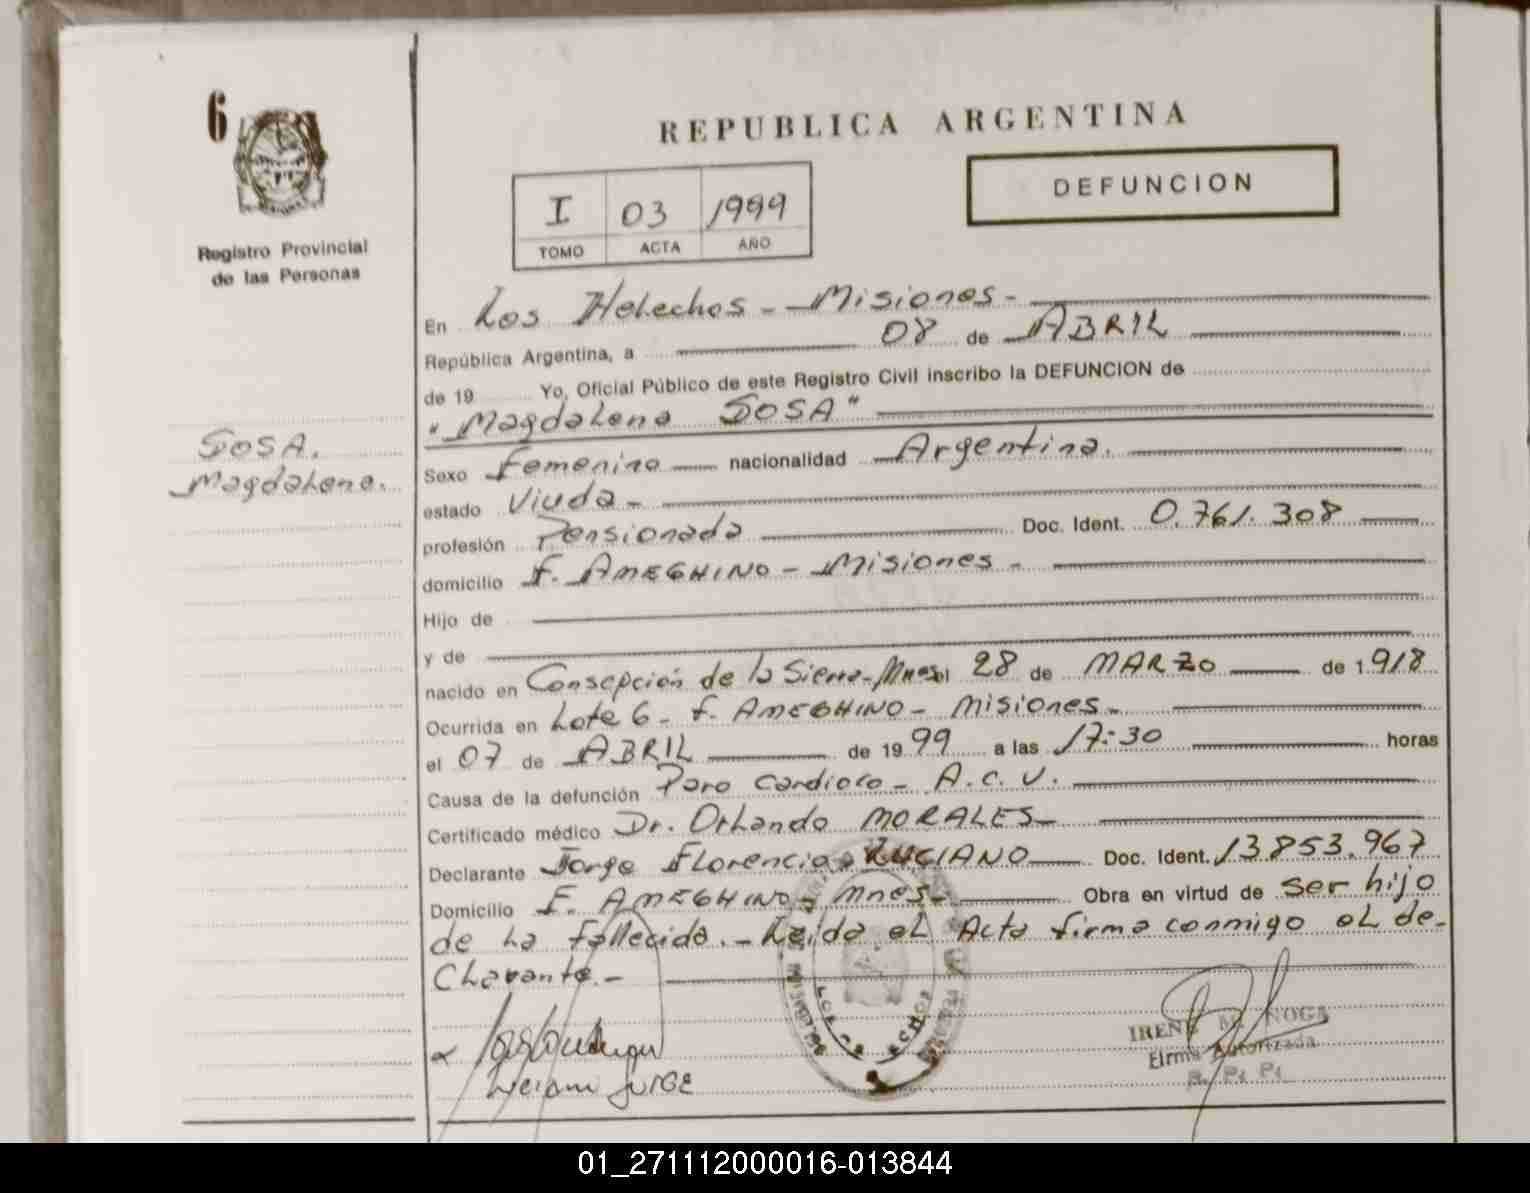 6
REPUBLICA ARGENTINA
DEFUNCION
I 03 1999
TOMO ACTA AÑO
Registro Provincial
de las Personas
En Los Helechos - Misiones -
República Argentina, a 08 de ABRIL
de 19 Yo, Oficial Público de este Registro Civil inscribo la DEFUNCION de
"Magdalena SOSA"
SOSA.
Magdalena.
Sexo Femenino nacionalidad Argentina.
estado Viuda -
profesión Pensionada Doc. Ident. 0.761.308
domicilio F. AMEGHINO - Misiones -
Hijo de
y de
nacido en Consepción de la Sierra - Mnes el 28 de MARZO de 1.918
Ocurrida en Lote 6 - F. AMEGHINO - Misiones -
el 07 de ABRIL de 1999 a las 17:30 horas
Causa de la defunción Paro Cardiaco - A.C.V.
Certificado médico Dr. Orlando MORALES -
Declarante Jorge Florencio LUCIANO Doc. Ident. 13.853.967
Domicilio F. AMEGHINO - Mnes - Obra en virtud de ser hijo
de la fallecida. - Leida el Acta firma conmigo el de-
clarante. -
IRENE M. NOGA
Firma Autorizada
R. P. P.
JORGE
01_271112000016-013844